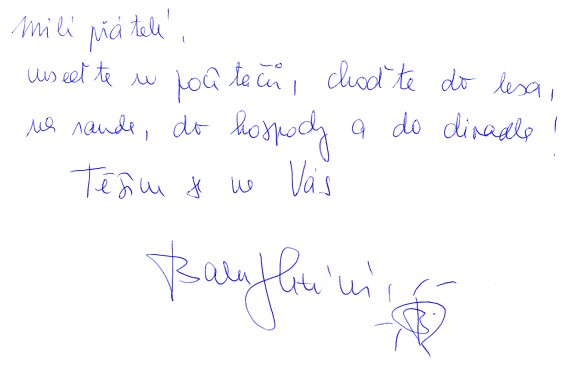 Milí přátelé,
neseďte u počítačů, choďte do lesa,
na rande, do hospody a do divadla!
Těším se na Vás
Bára Hrzánová